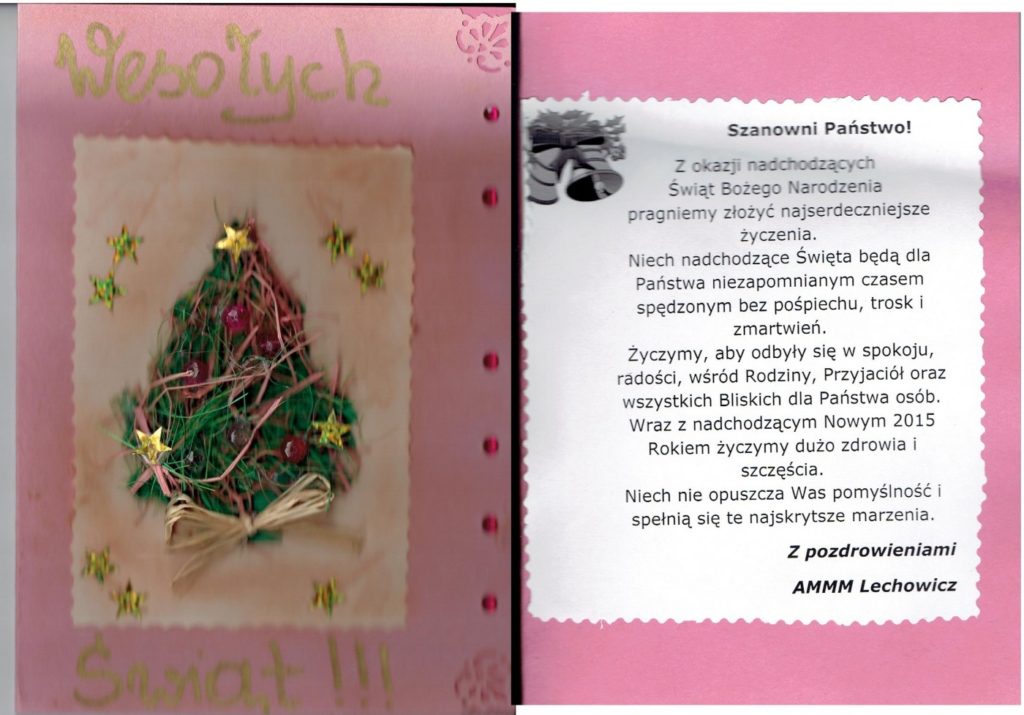 Wesołych
Świąt!!!
Szanowni Państwo!
Z okazji nadchodzących
Świąt Bożego Narodzenia
pragniemy złożyć najserdeczniejsze
życzenia.
Niech nadchodzące Święta będą dla
Państwa niezapomnianym czasem
spędzonym bez pośpiechu, trosk i
zmartwień.
Życzymy, aby odbyły się w spokoju,
radości, wśród Rodziny, Przyjaciół oraz
wszystkich Bliskich dla Państwa osób.
Wraz z nadchodzącym Nowym 2015
Rokiem życzymy dużo zdrowia i
szczęścia.
Niech nie opuszcza Was pomyślność i
spełnią się te najskrytsze marzenia.
Z pozdrowieniami
AMMM Lechowicz